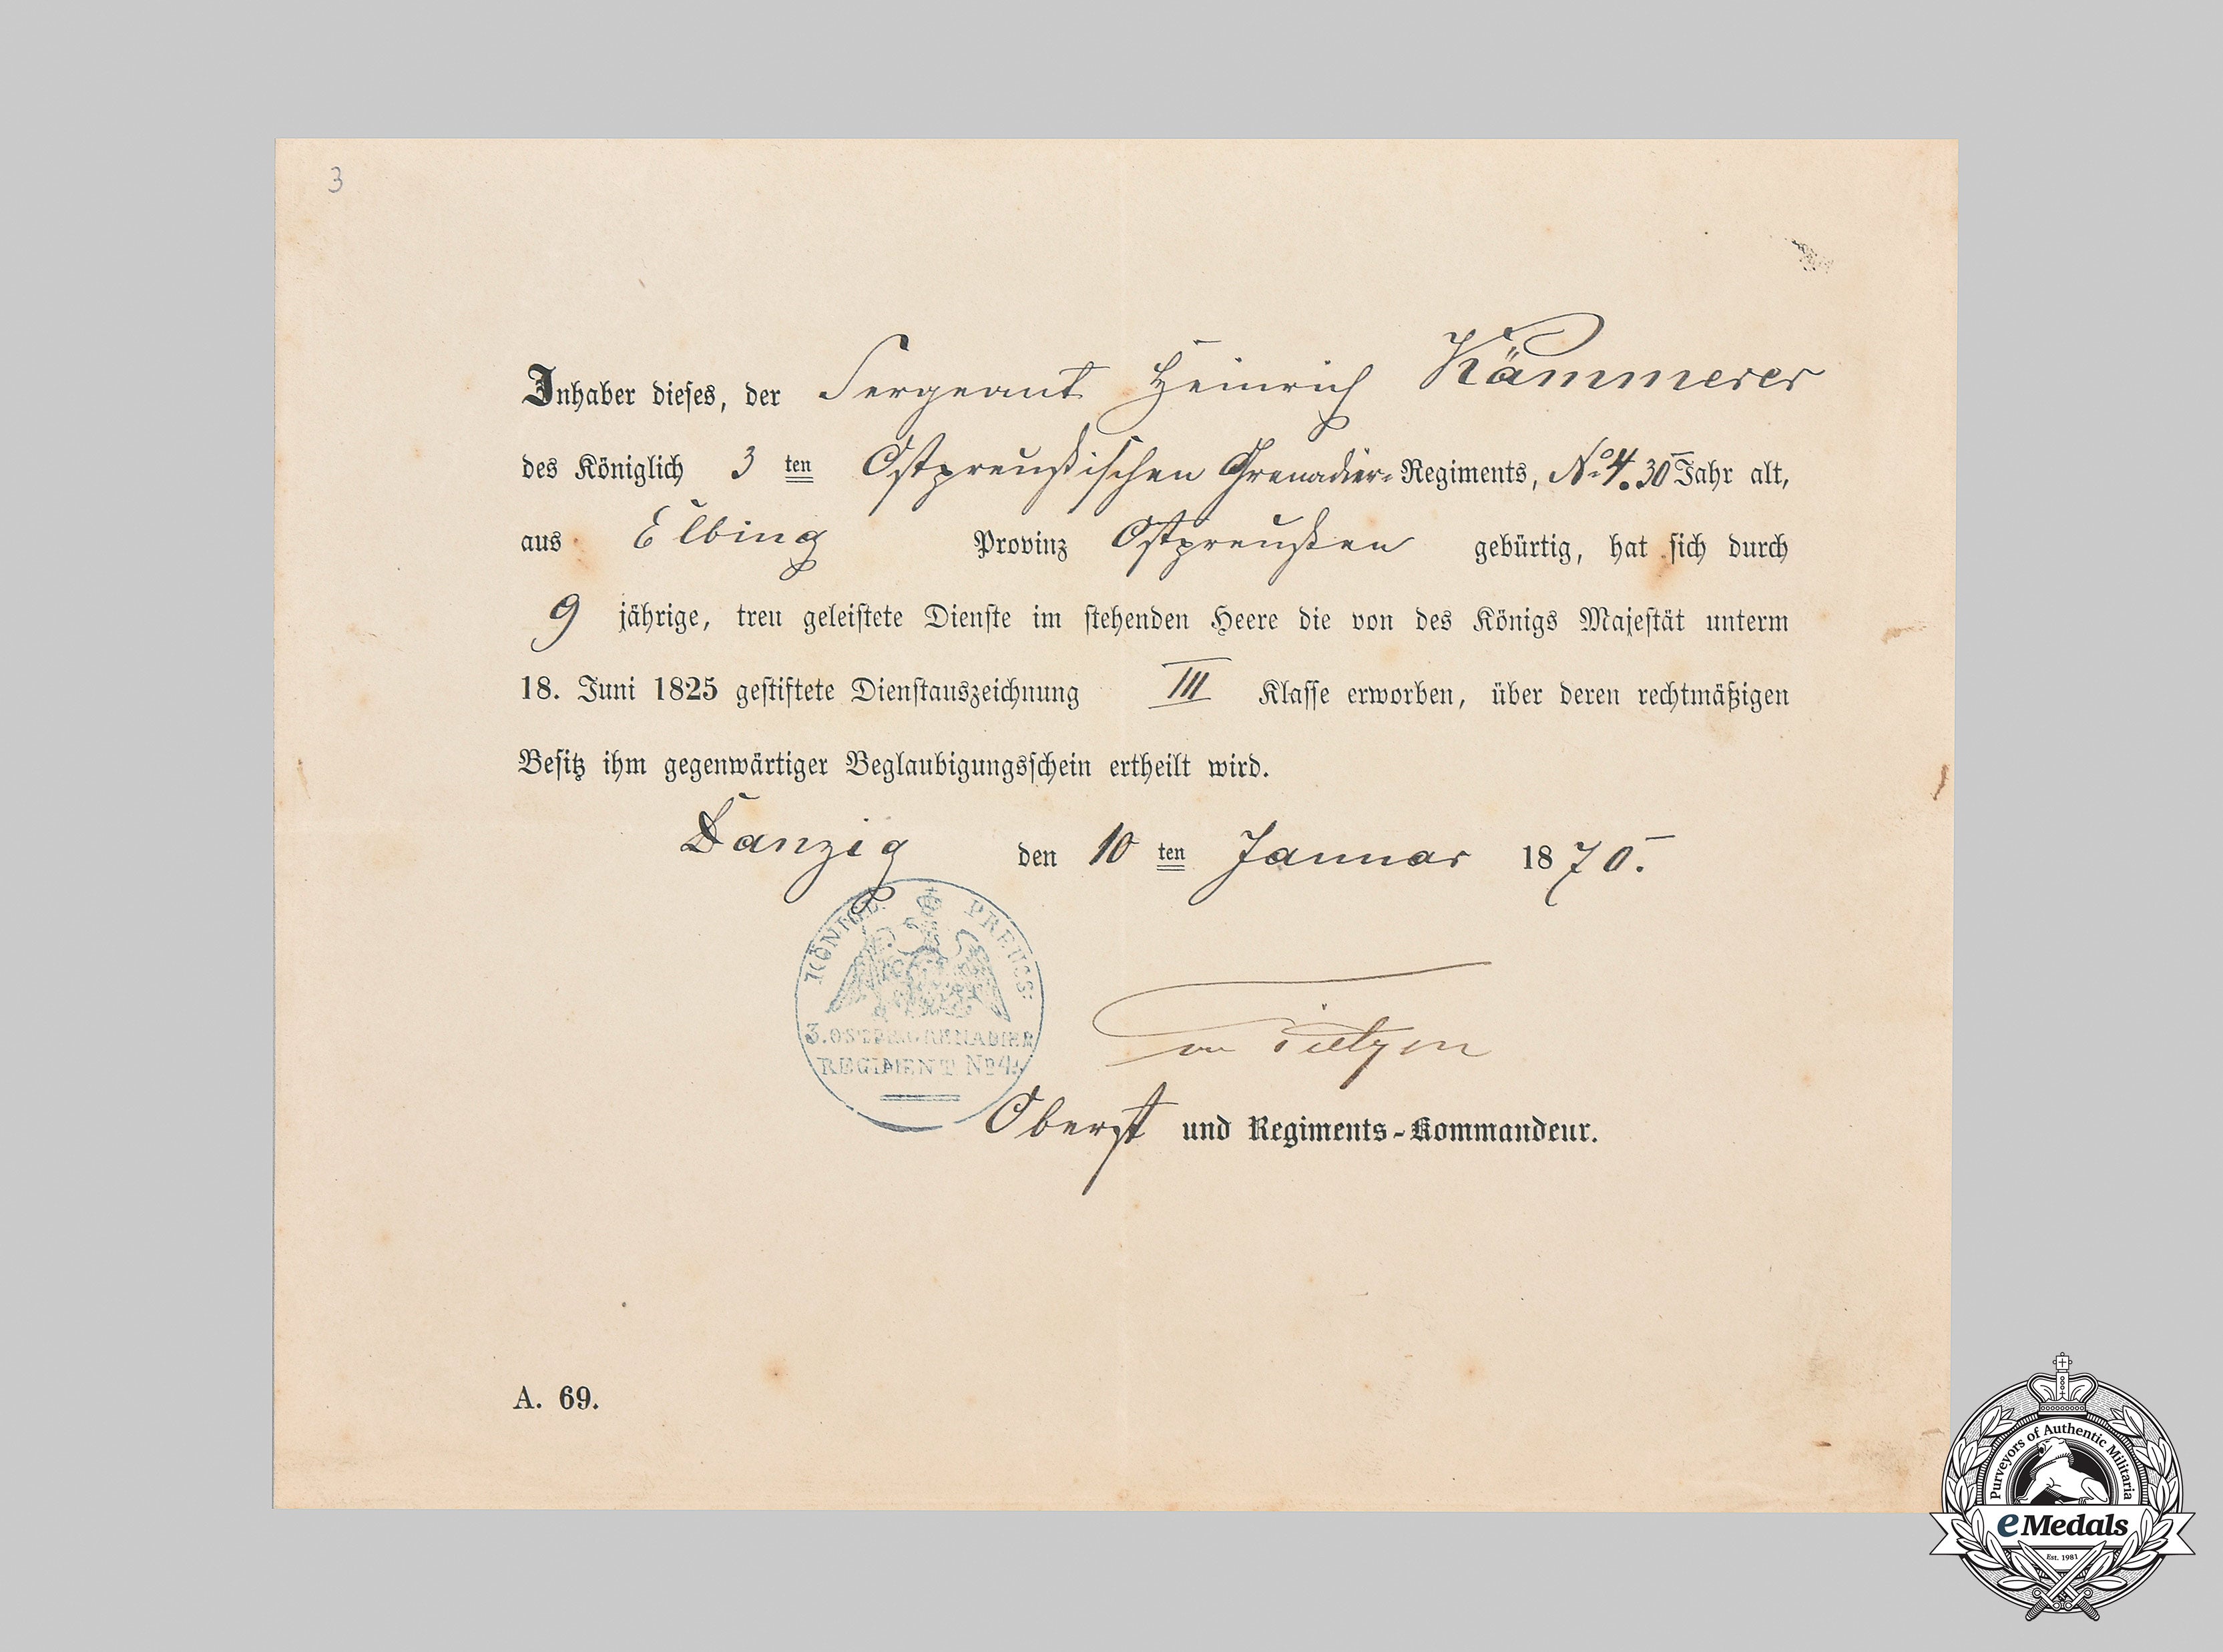 3
Inhaber dieses, der Sergeant Heinrich Kämmerer
des Königlich 3 ten Ostpreußischen Grenadier-Regiments, No 4. 30 Jahr alt,
aus Elbing Provinz Ostpreußen gebürtig, hat sich durch
9 jährige, treu geleistete Dienste im stehenden Heere die von des Königs Majestät unterm
18. Juni 1825 gestiftete Dienstauszeichnung III Klasse erworben, über deren rechtmäßigen
Besitz ihm gegenwärtiger Beglaubigungsschein ertheilt wird.
Danzig den 10 ten Januar 1870.
KÖNIGL. PREUSS:
3. OSTPR. GRENADIER
REGIMENT No 4.
von Tietzen
Oberst und Regiments-Kommandeur.
A. 69.
Purveyors of Authentic Militaria
eMedals
Est. 1981